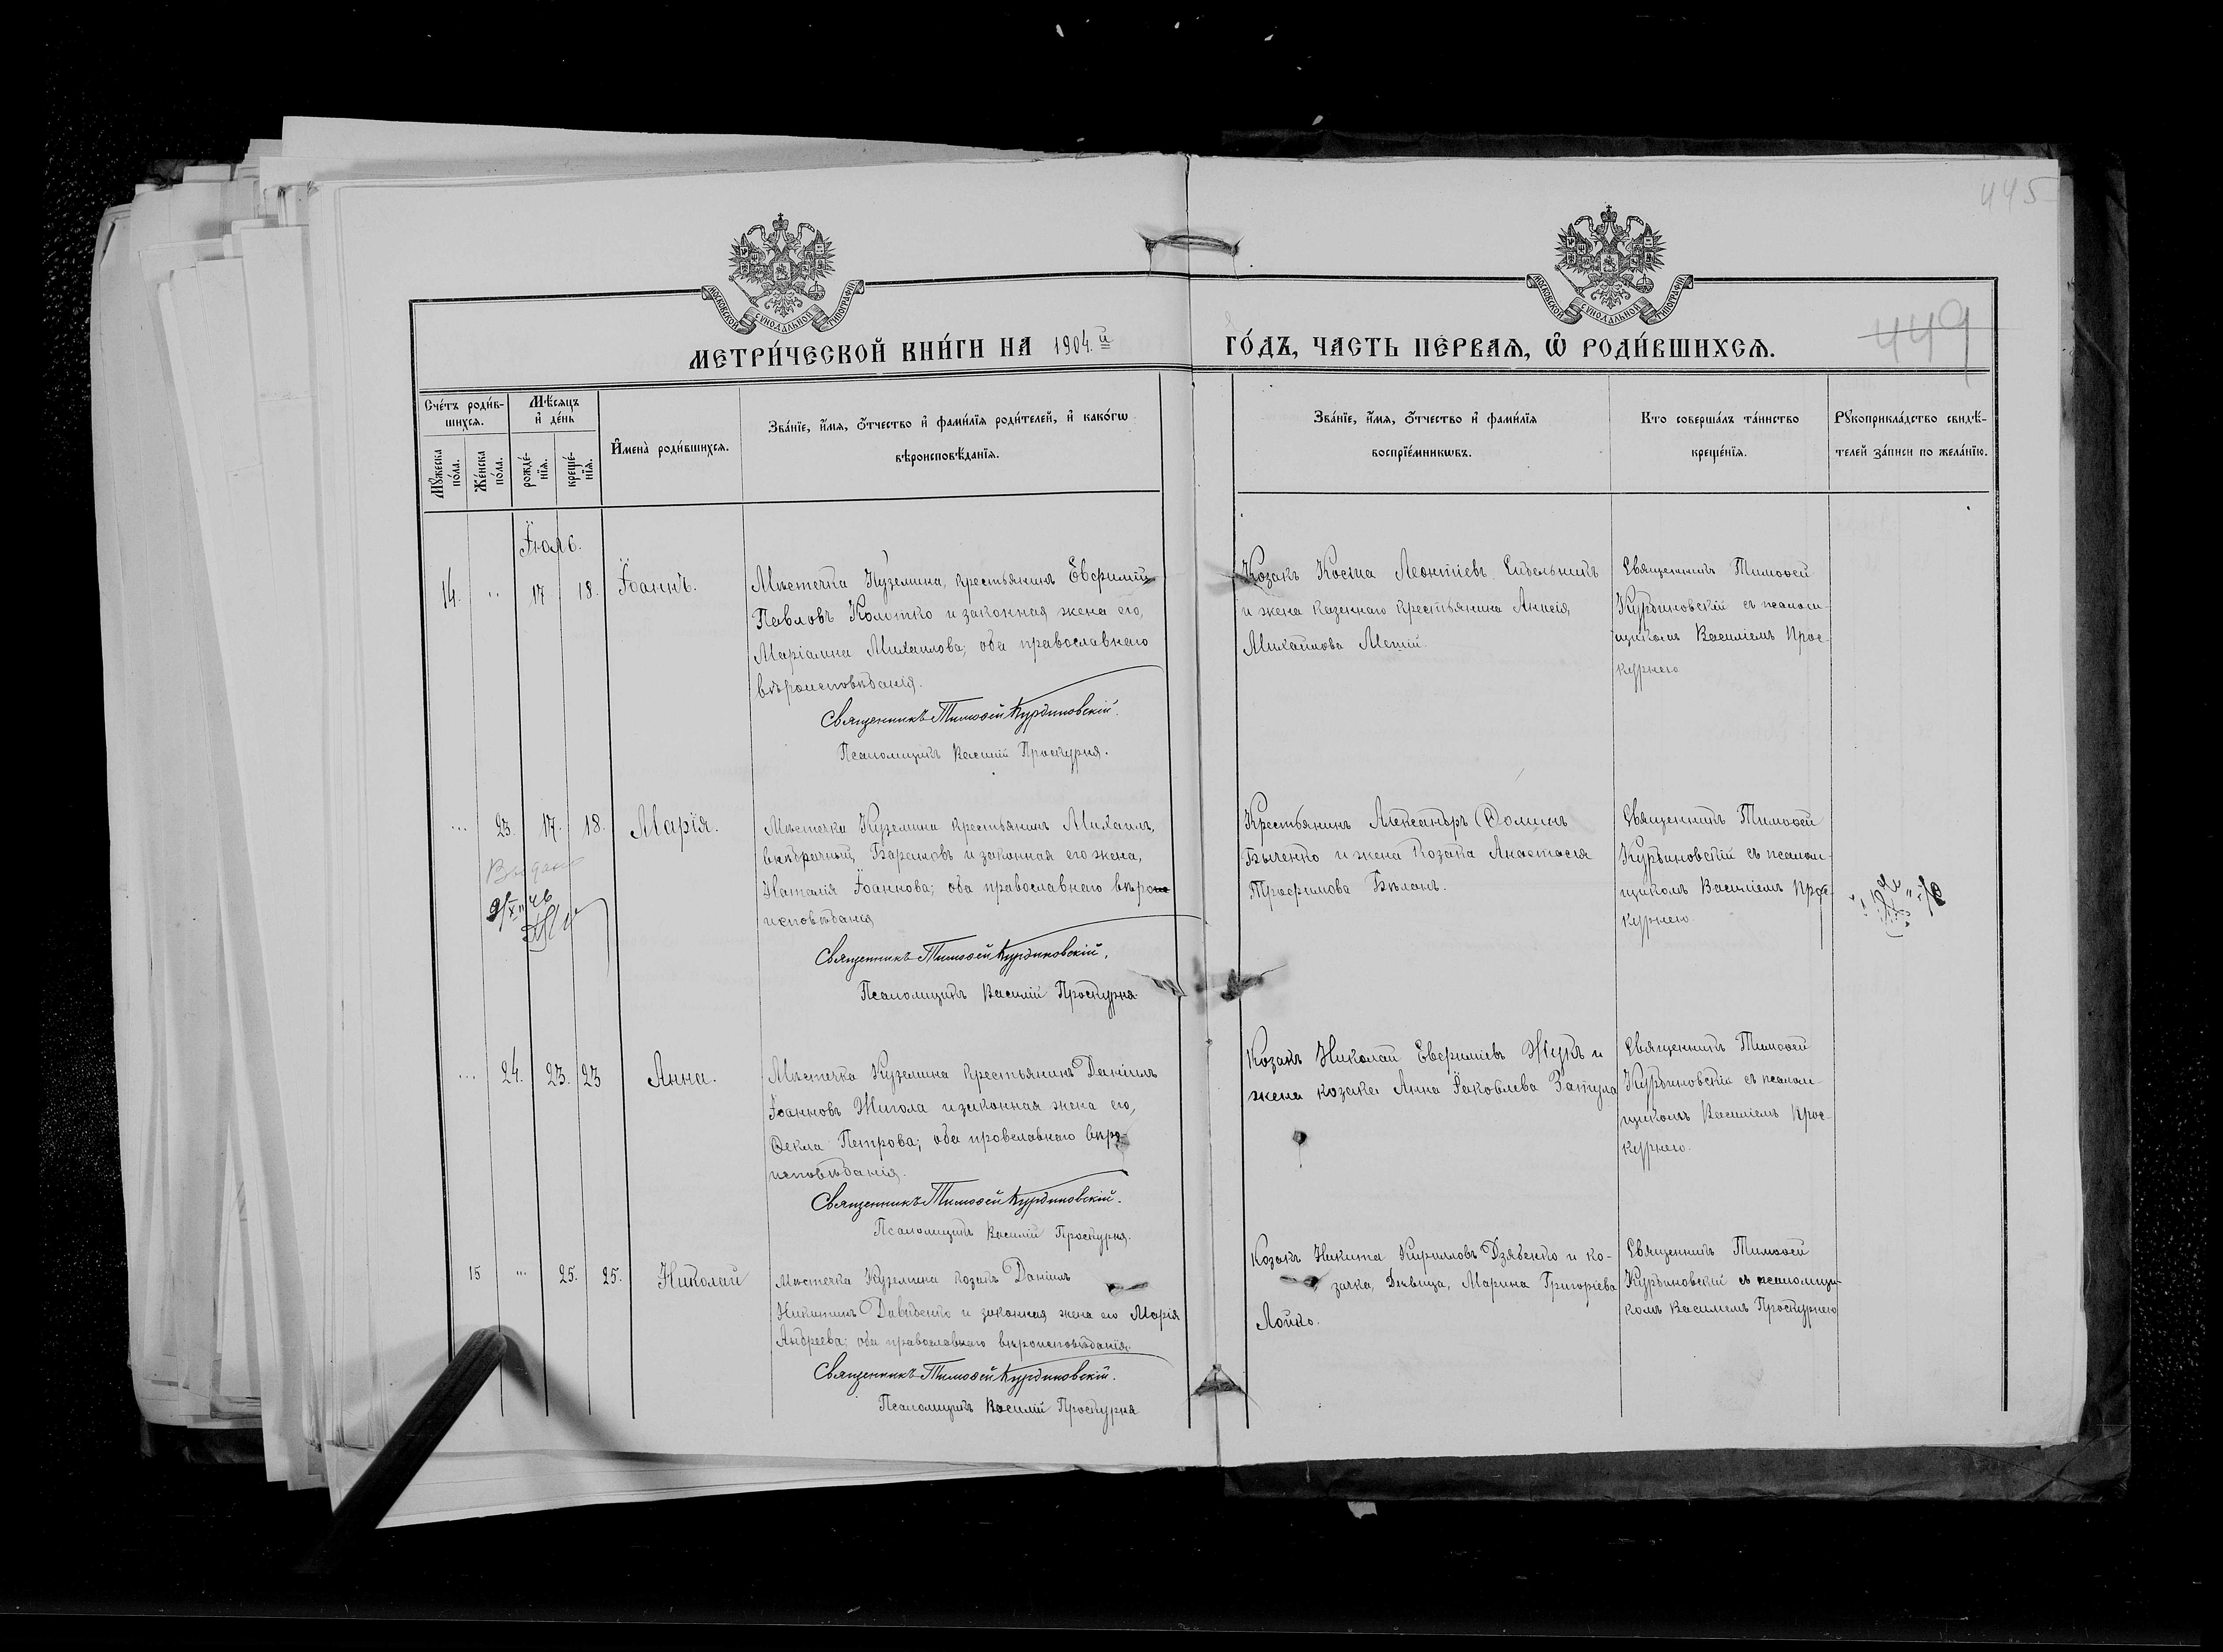 445
449
МОСКОВСКОЙ СУНОДАЛЬНОЙ ТИПОГРАФІИ
МОСКОВСКОЙ СУНОДАЛЬНОЙ ТИПОГРАФІИ
МЕТРИ́ЧЕСКОЙ КНИ́ГИ НА 1904.й ГО́ДЪ, ЧАСТЬ ПЕ́РВАѦ, Ѡ РОДИ́ВШИХСѦ.
Сче́тъ роди́в-
шихсѧ.
Мѣ́сѧцъ
и҆ де́нь
Мꙋ́жеска
по́ла.
Же́нска
по́ла.
рожде́-
нїѧ.
креще́-
нїѧ.
И҆мена̀ роди́вшихсѧ.
Зва́нїе, и҆́мѧ, ѻ҆́тчество и҆ фами́лїѧ роди́телей, и҆ како́гѡ
вѣроисповѣ́данїѧ.
Зва́нїе, и҆́мѧ, ѻ҆́тчество и҆ фами́лїѧ
воспрїе́мникѡвъ.
Кто соверша́лъ та́инство
креще́нїѧ.
Рꙋкоприкла́дство свидѣ́-
телей за́писи по жела́нїю.
Іюль.
14. " 17 18. Іоаннъ.
Мѣстечка Куземина, крестьянинъ Евѳимій
Павловъ Колотко и законная жена его,
Маріамна Михаилова; оба православнаго
вѣроисповѣданія.
Священникъ Тимоѳей Курдиновскій.
Псаломщикъ Василій Проскурня.
Козакъ Косма Леонтіевъ
и жена казеннаго крестьянина Анисія
Михаилова
Священникъ Тимоѳей
Курдиновскій съ псалом-
щикомъ Василіемъ Прос-
курнею
... 23. 17. 18. Марія.
Выдано
Мѣстечка Куземина крестьянинъ Михаилъ,
внѣбрачный, Барановъ и законная его жена,
Наталія Іоаннова; оба православнаго вѣро
исповѣданія
Священникъ Тимоѳей Курдиновскій.
Псаломщикъ Василій Проскурня
Крестьянинъ Александръ Ѳоминъ
Быченко и жена козака Анастасія
Трофимова Бѣланъ.
Священникъ Тимоѳей
Курдиновскій съ псалом-
щикомъ Василіемъ Прос-
курнею
... 24. 23. 23 Анна.
Мѣстечка Куземина крестьянинъ Даніилъ
Іоанновъ Жигола и законная жена его,
Ѳекла Петрова; оба православнаго вѣро-
исповѣданія.
Священникъ Тимоѳей Курдиновскій.
Псаломщикъ Василій Проскурня.
Козакъ Николай Евѳиміевъ Жукъ и
жена козака Анна Іаковлева
Священникъ Тимоѳей
Курдиновскій съ псалом-
щикомъ Василіемъ Прос-
курнею.
15 ... 25. 25. Николай
Мѣстечка Куземина козакъ Даніилъ
Никитинъ Давиденко и законная жена его Марія
Андреева; оба православнаго вѣроисповѣданія.
Священникъ Тимоѳей Курдиновскій.
Псаломщикъ Василій Проскурня
Козакъ Никита Кирилловъ Дзябенко и ко-
зачка, дѣвица, Марина Григоріева
Лойко.
Священникъ Тимоѳей
Курдиновскій съ псаломщи-
комъ Василіемъ Проскурнею